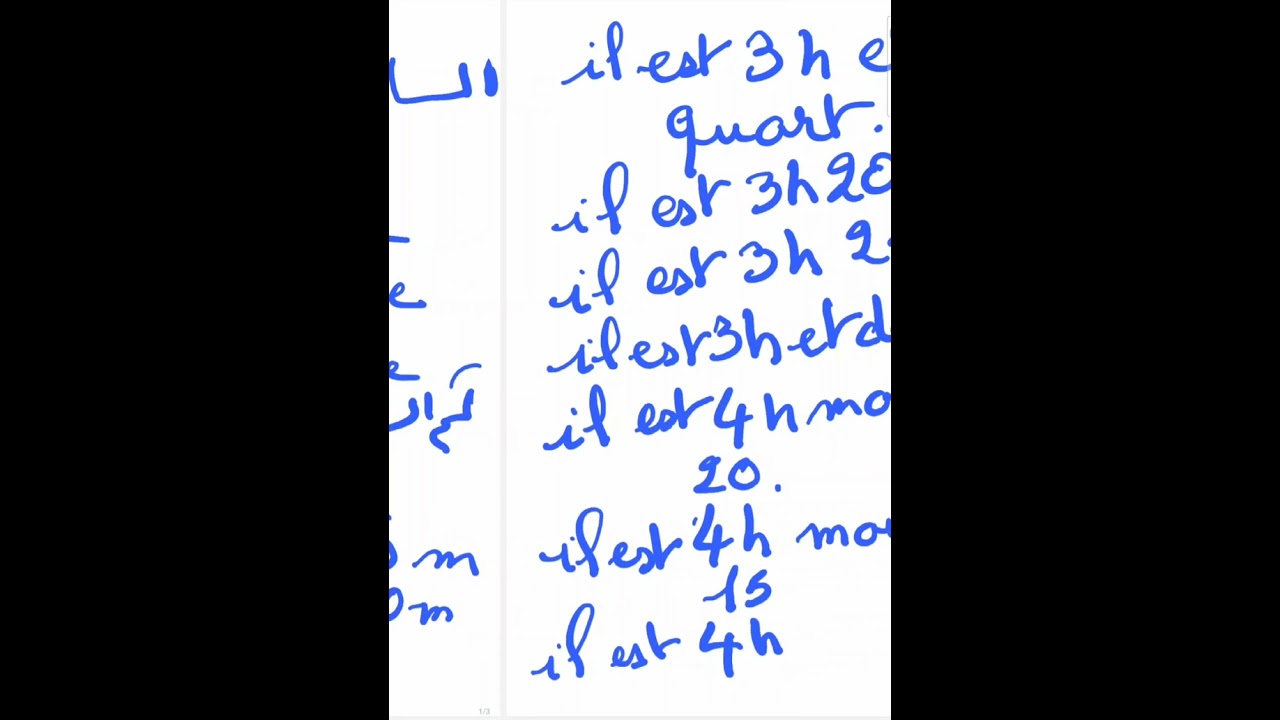 il est 3 h e
quart.
il est 3h 20
il est 3h 2
il est 3h et d
il est 4h mo
20.
il est 4h mo
15
il est 4h
الس
e
e
m
0m
1/3